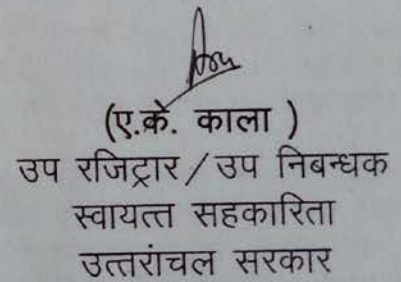 (ए.के. काला )
उप रजिट्रार / उप निबन्धक
स्वायत्त सहकारिता
उत्तरांचल सरकार